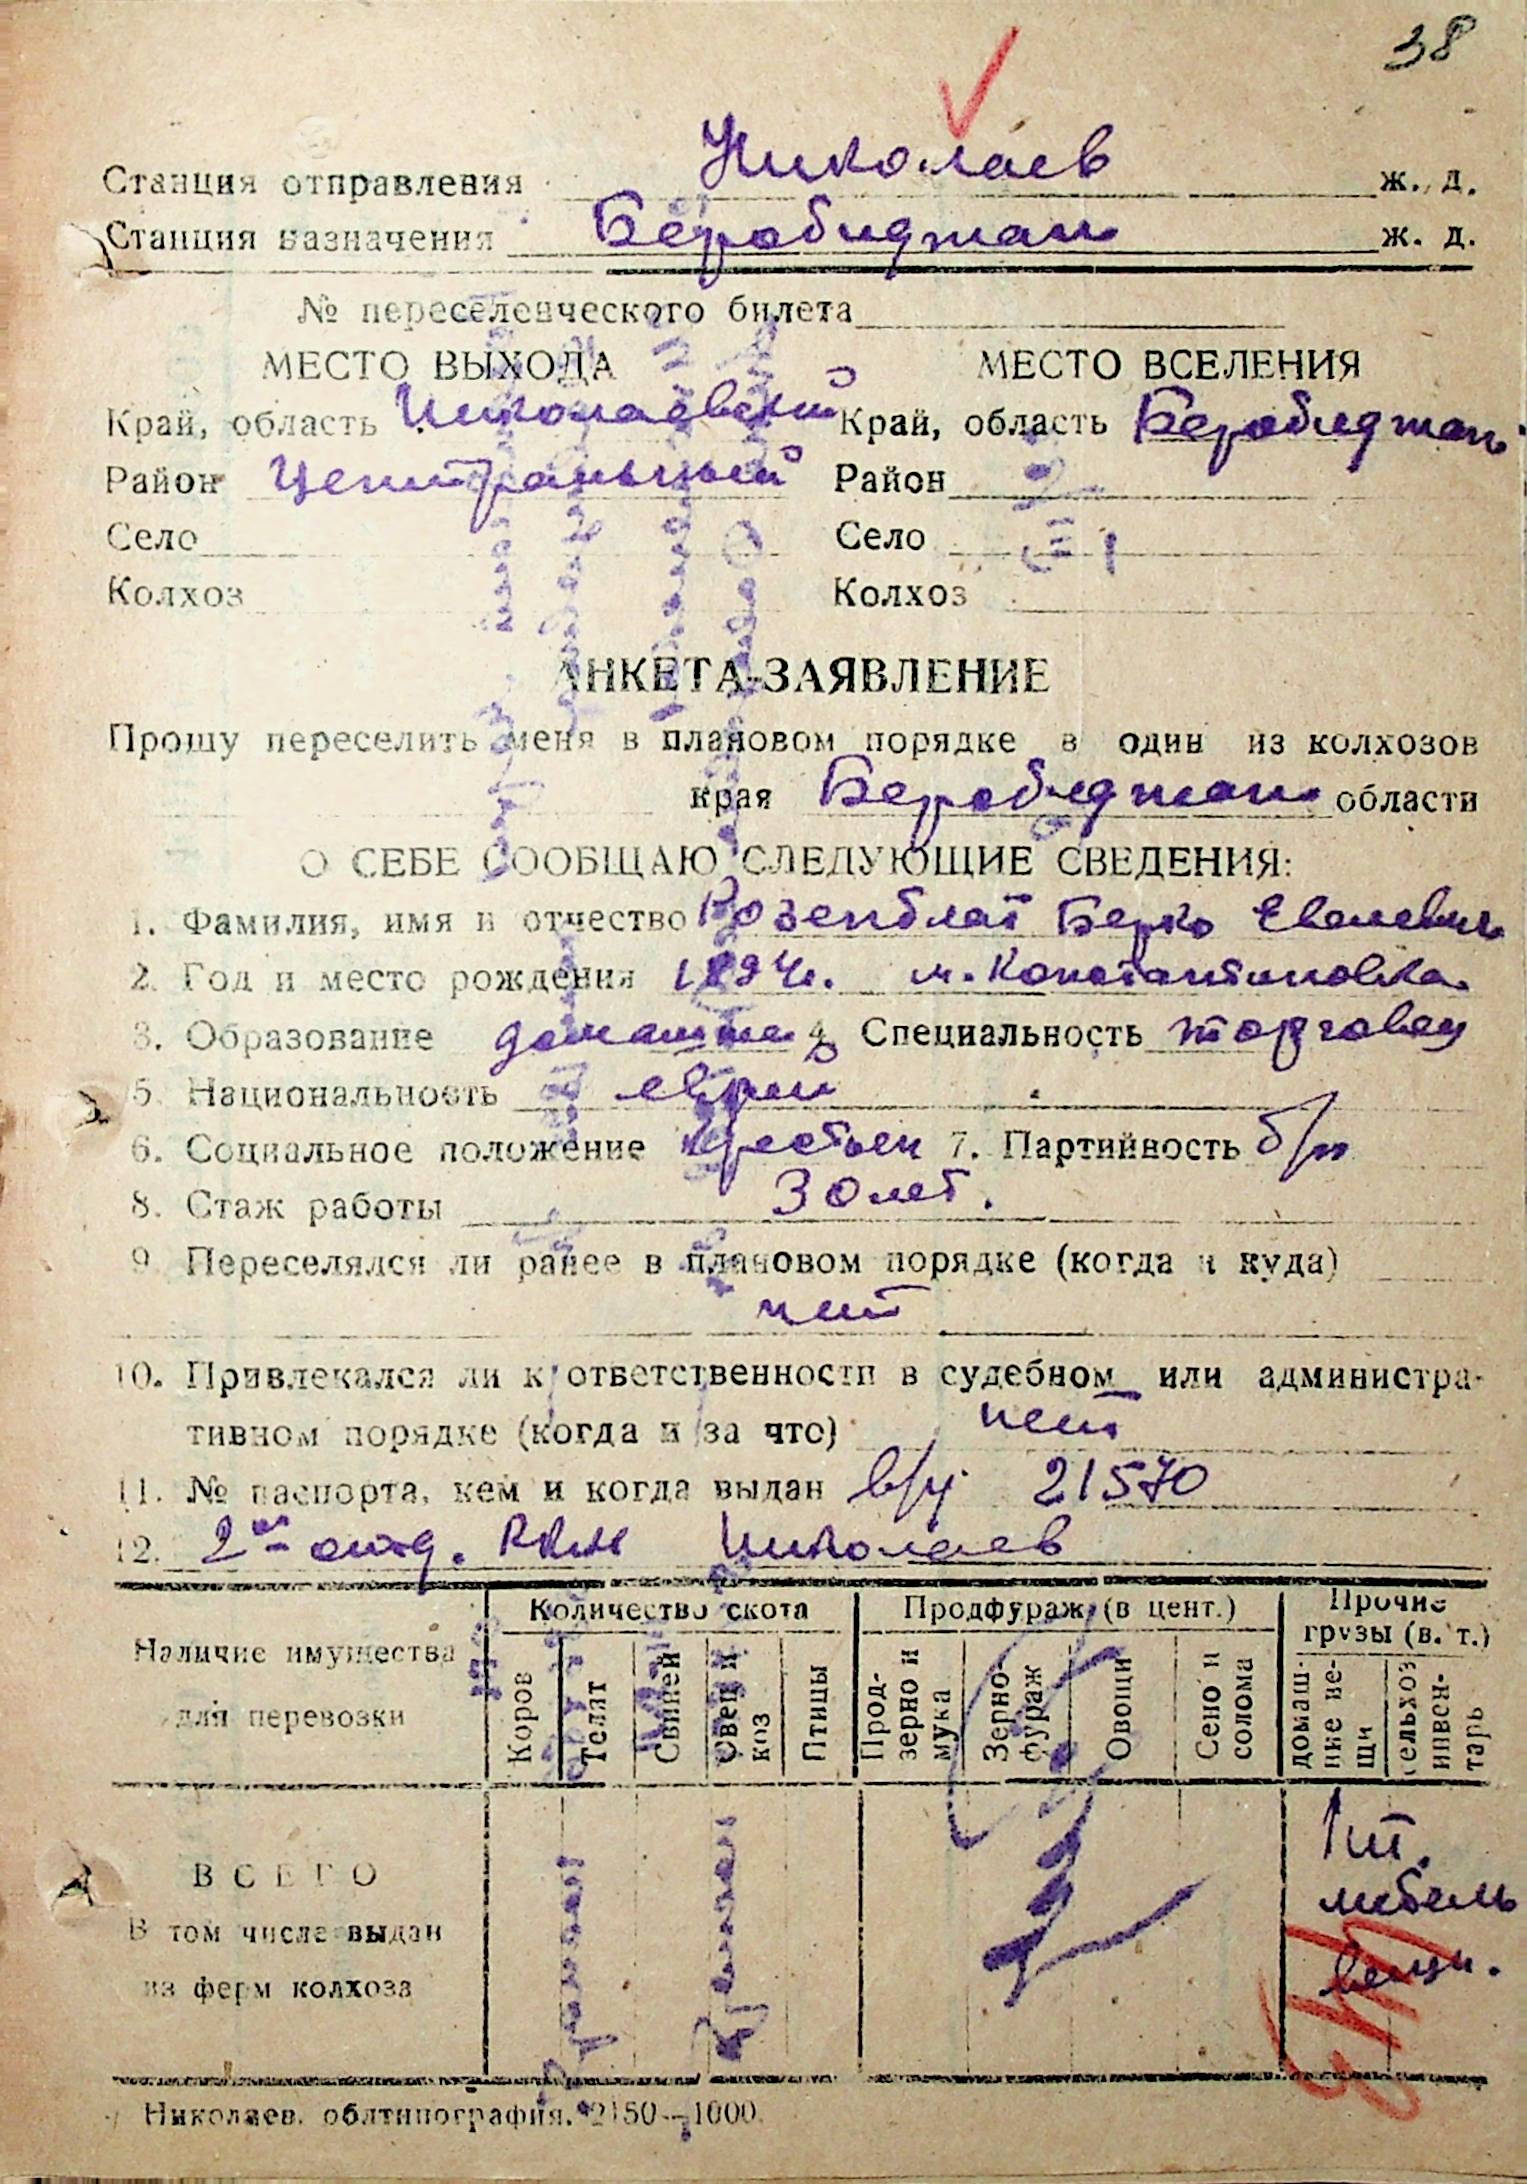 38
Станция отправления Николаев ж. д.
Станция назначения Беробиджан ж. д.
№ переселенческого билета
МЕСТО ВЫХОДА МЕСТО ВСЕЛЕНИЯ
Край, область Николаевский Край, область Беробиджан
Район Центральный Район
Село Село
Колхоз Колхоз
АНКЕТА-ЗАЯВЛЕНИЕ
Прошу переселить меня в плановом порядке в один из колхозов
края Беробиджан области
О СЕБЕ СООБЩАЮ СЛЕДУЮЩИЕ СВЕДЕНИЯ:
1. Фамилия, имя и отчество Розенблат Берко
2. Год и место рождения 1894г. м. Константиновка
3. Образование домашнее 4. Специальность торговец
5. Национальность еврей
6. Социальное положение 7. Партийность б/п
8. Стаж работы 30 лет.
9. Переселялся ли ранее в плановом порядке (когда и куда)
нет
10. Привлекался ли к ответственности в судебном или администра-
тивном порядке (когда и за что) нет
11. № паспорта, кем и когда выдан 21570
12. 2ое отд. РКМ Николаев
Наличие имущества для перевозки
Количество скота
Коров
Телят
Свиней
Овец и коз
Птицы
Продфураж (в цент.)
Прод-зерно и мука
Зерно-фураж
Овощи
Сено и солома
Прочие грузы (в. т.)
домаш-ние ве-щи
сельхоз инвен-тарь
ВСЕГО
В том числе выдан
из ферм колхоза
1 т.
мебель
вещи.
Николаев. облтипография. 2150—1000